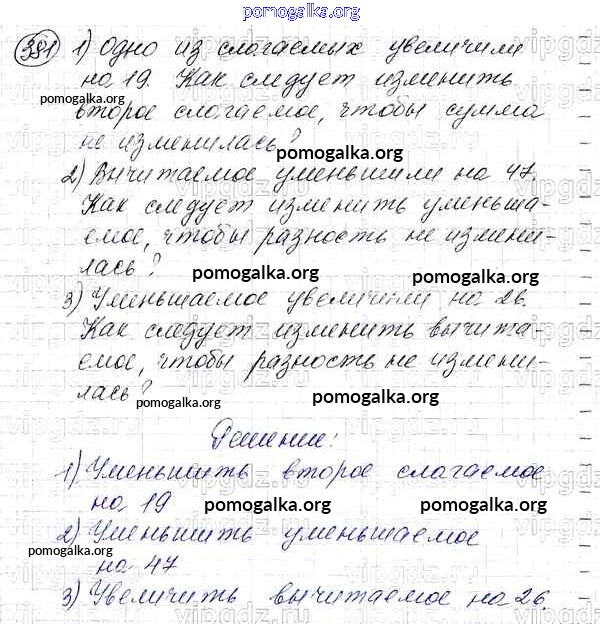 pomogalka.org
381 1) Одно из слагаемых увеличили
на 19. Как следует изменить
pomogalka.org
второе слагаемое, чтобы сумма
не изменилась?
pomogalka.org
2) Вычитаемое уменьшили на 47.
Как следует изменить уменьша-
емое, чтобы разность не измени-
лась?
pomogalka.org pomogalka.org
3) Уменьшаемое увеличили на 26.
Как следует изменить вычита-
емое, чтобы разность не измени-
лась?
pomogalka.org pomogalka.org
Решение:
1) Уменьшить второе слагаемое
на 19
pomogalka.org pomogalka.org
2) Уменьшить уменьшаемое
pomogalka.org
на 47
3) Увеличить вычитаемое на 26.